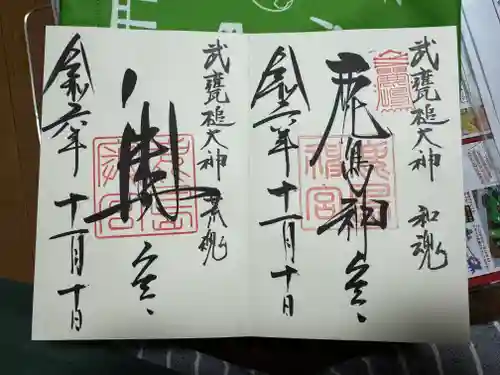 武甕槌大神 和魂
鹿島神宮
鹿島神宮
令和六年 十一月十日
武甕槌大神 荒魂
奥宮
令和六年 十一月十日